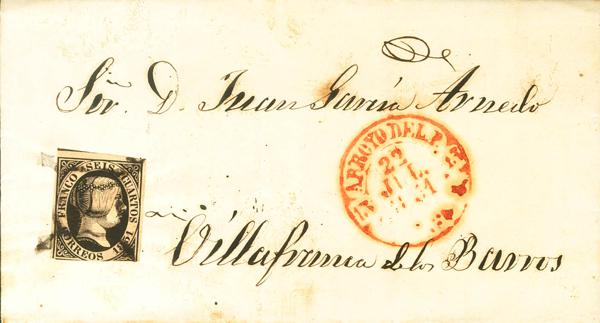 Sor. D. Juan García Arnedo
FRANCO SEIS CUARTOS
CORREOS 1851
ARROYO DEL P.
22
JUL.
Villafranca de los Barros